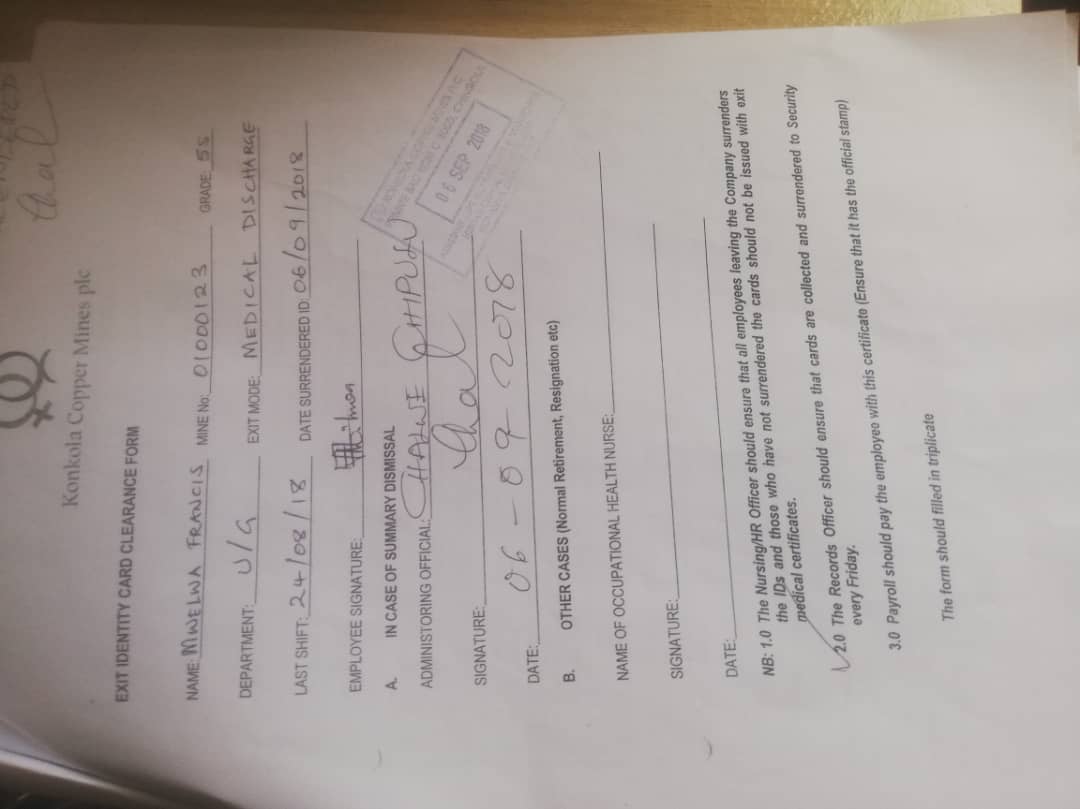 Konkola Copper Mines plc
EXIT IDENTITY CARD CLEARANCE FORM
NAME: MWELWA FRANCIS MINE No: 01000123 GRADE: 5S
DEPARTMENT: U/G EXIT MODE: MEDICAL DISCHARGE
LAST SHIFT: 24/08/18 DATE SURRENDERED ID: 06/09/2018
EMPLOYEE SIGNATURE:
A. IN CASE OF SUMMARY DISMISSAL
ADMINISTORING OFFICIAL:
06 SEP 2018
SIGNATURE:
DATE: 06-09-2018
B. OTHER CASES (Normal Retirement, Resignation etc)
NAME OF OCCUPATIONAL HEALTH NURSE:
SIGNATURE:
DATE:
NB: 1.0 The Nursing/HR Officer should ensure that all employees leaving the Company surrenders
the IDs and those who have not surrendered the cards should not be issued with exit
medical certificates.
2.0 The Records Officer should ensure that cards are collected and surrendered to Security
every Friday.
3.0 Payroll should pay the employee with this certificate (Ensure that it has the official stamp)
The form should filled in triplicate